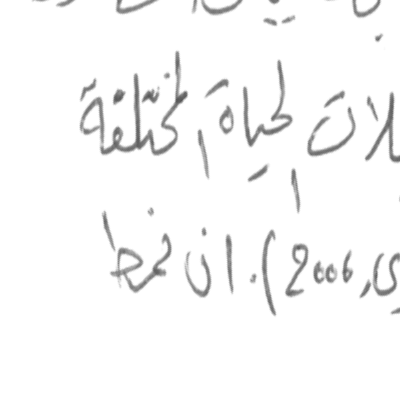 لات الحياة المختلفة
ي, 2006). ان نمط